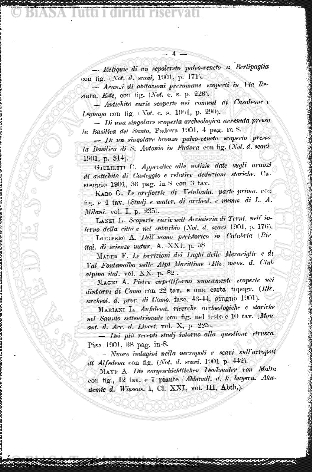 © BIASA Tutti i diritti riservati
— 4 —
— Reliquie di un sepolcreto paleo-veneto a Berlipaglia
con fig. (Not. d. scavi, 1901, p. 171).
— Avanzi di abitazioni preromane scoperti in Via Re-
stara, Este, con fig. (Not. c. s. p. 226).
— Antichità varie scoperte nei comuni di Casaleone e
Legnago con fig. (Not. c. s. 1901, p. 290).
— Di una singolare scoperta archeologica avvenuta presso
la Basilica del Santo, Padova 1901, 4 pag. in 8.
— Di un singolare bronzo paleo-veneto scoperto presso
la Basilica di S. Antonio in Padova con fig. (Not. d. scavi,
1901, p. 314).
Giulietti C. Appendice alle notizie date sugli avanzi
di antichità di Casteggio e relative deduzioni storiche. Ca-
steggio 1901, 36 pag. in 8 con 3 tav.
Karo G. Le oreficerie di Vetulonia, parte prima, con
fig. e 1 tav. (Studj e mater. di archeol. e numis. di L. A.
Milani, vol. I, p. 235).
Lanzi L. Scoperte varie nell'Acciaieria di Terni, nell'in-
terno della città e nel suburbio (Not. d. scavi 1901, p. 176).
Lucifero A. Dell'uomo preistorico in Calabria (Riv.
ital. di scienze natur. A. XXI, p. 58
Mader F. Le iscrizioni dei Laghi delle Meraviglie e di
Val Fontanalba nelle Alpi Marittime (Riv. mens. d. Club
alpino ital. vol. XX, p. 82).
Magni A. Pietre cupelliformi nuovamente scoperte nei
dintorni di Como con 22 tav. e una carta topogr. (Riv.
archeol. d. prov. di Como, fasc. 43-44, giugno 1901).
Mariani L. Aufidena, ricerche archeologiche e storiche
nel Sannio settentrionale con fig. nel testo e 10 tav. (Mon.
ant. d. Acc. d. Lincei, vol. X, p. 225).
— Dei più recenti studi intorno alla questione etrusca.
Pisa 1901, 38 pag. in-8.
— Nuove indagini nella necropoli e scavi nell'arcipoli
di Alfedena con fig. (Not. d. scavi, 1901, p. 442).
Mayr A. Die vorgeschichtlichen Denkmäler von Malta
con fig., 12 tav. e 7 piante (Abhandl. d. k. bayern. Aka-
demie d. Wissen. I, Cl. XXI, vol. III, Abth.).